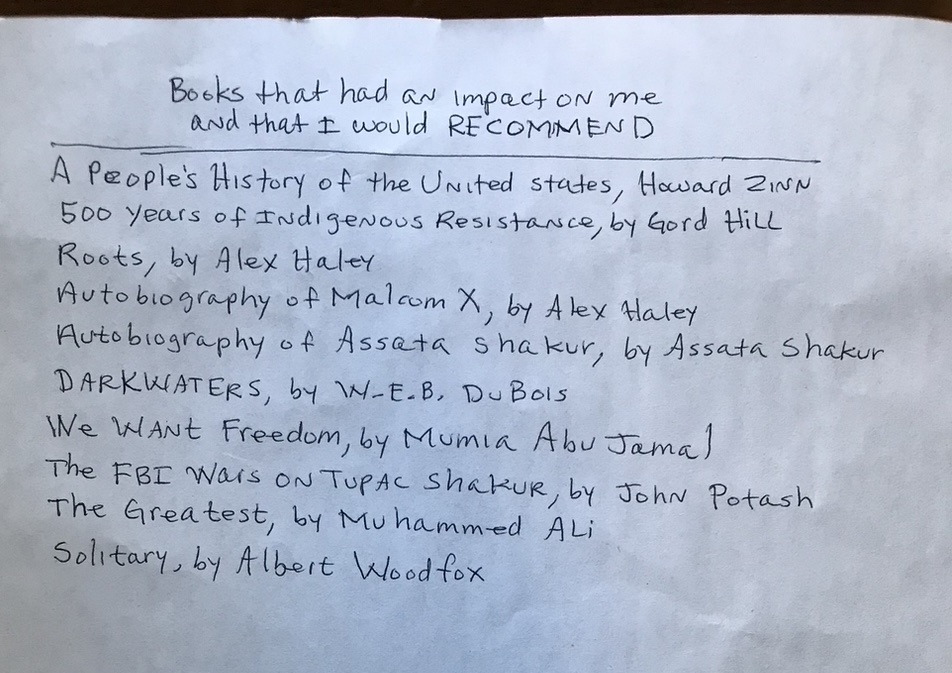 Books that had an impact on me
and that I would RECOMMEND
A People's History of the United States, Howard Zinn
500 years of Indigenous Resistance, by Gord Hill
Roots, by Alex Haley
Autobiography of Malcom X, by Alex Haley
Autobiography of Assata Shakur, by Assata Shakur
DARKWATERS, by W.E.B. DuBois
We WANT Freedom, by Mumia Abu Jamal
The FBI Wars on Tupac Shakur, by John Potash
The Greatest, by Muhammed Ali
Solitary, by Albert Woodfox